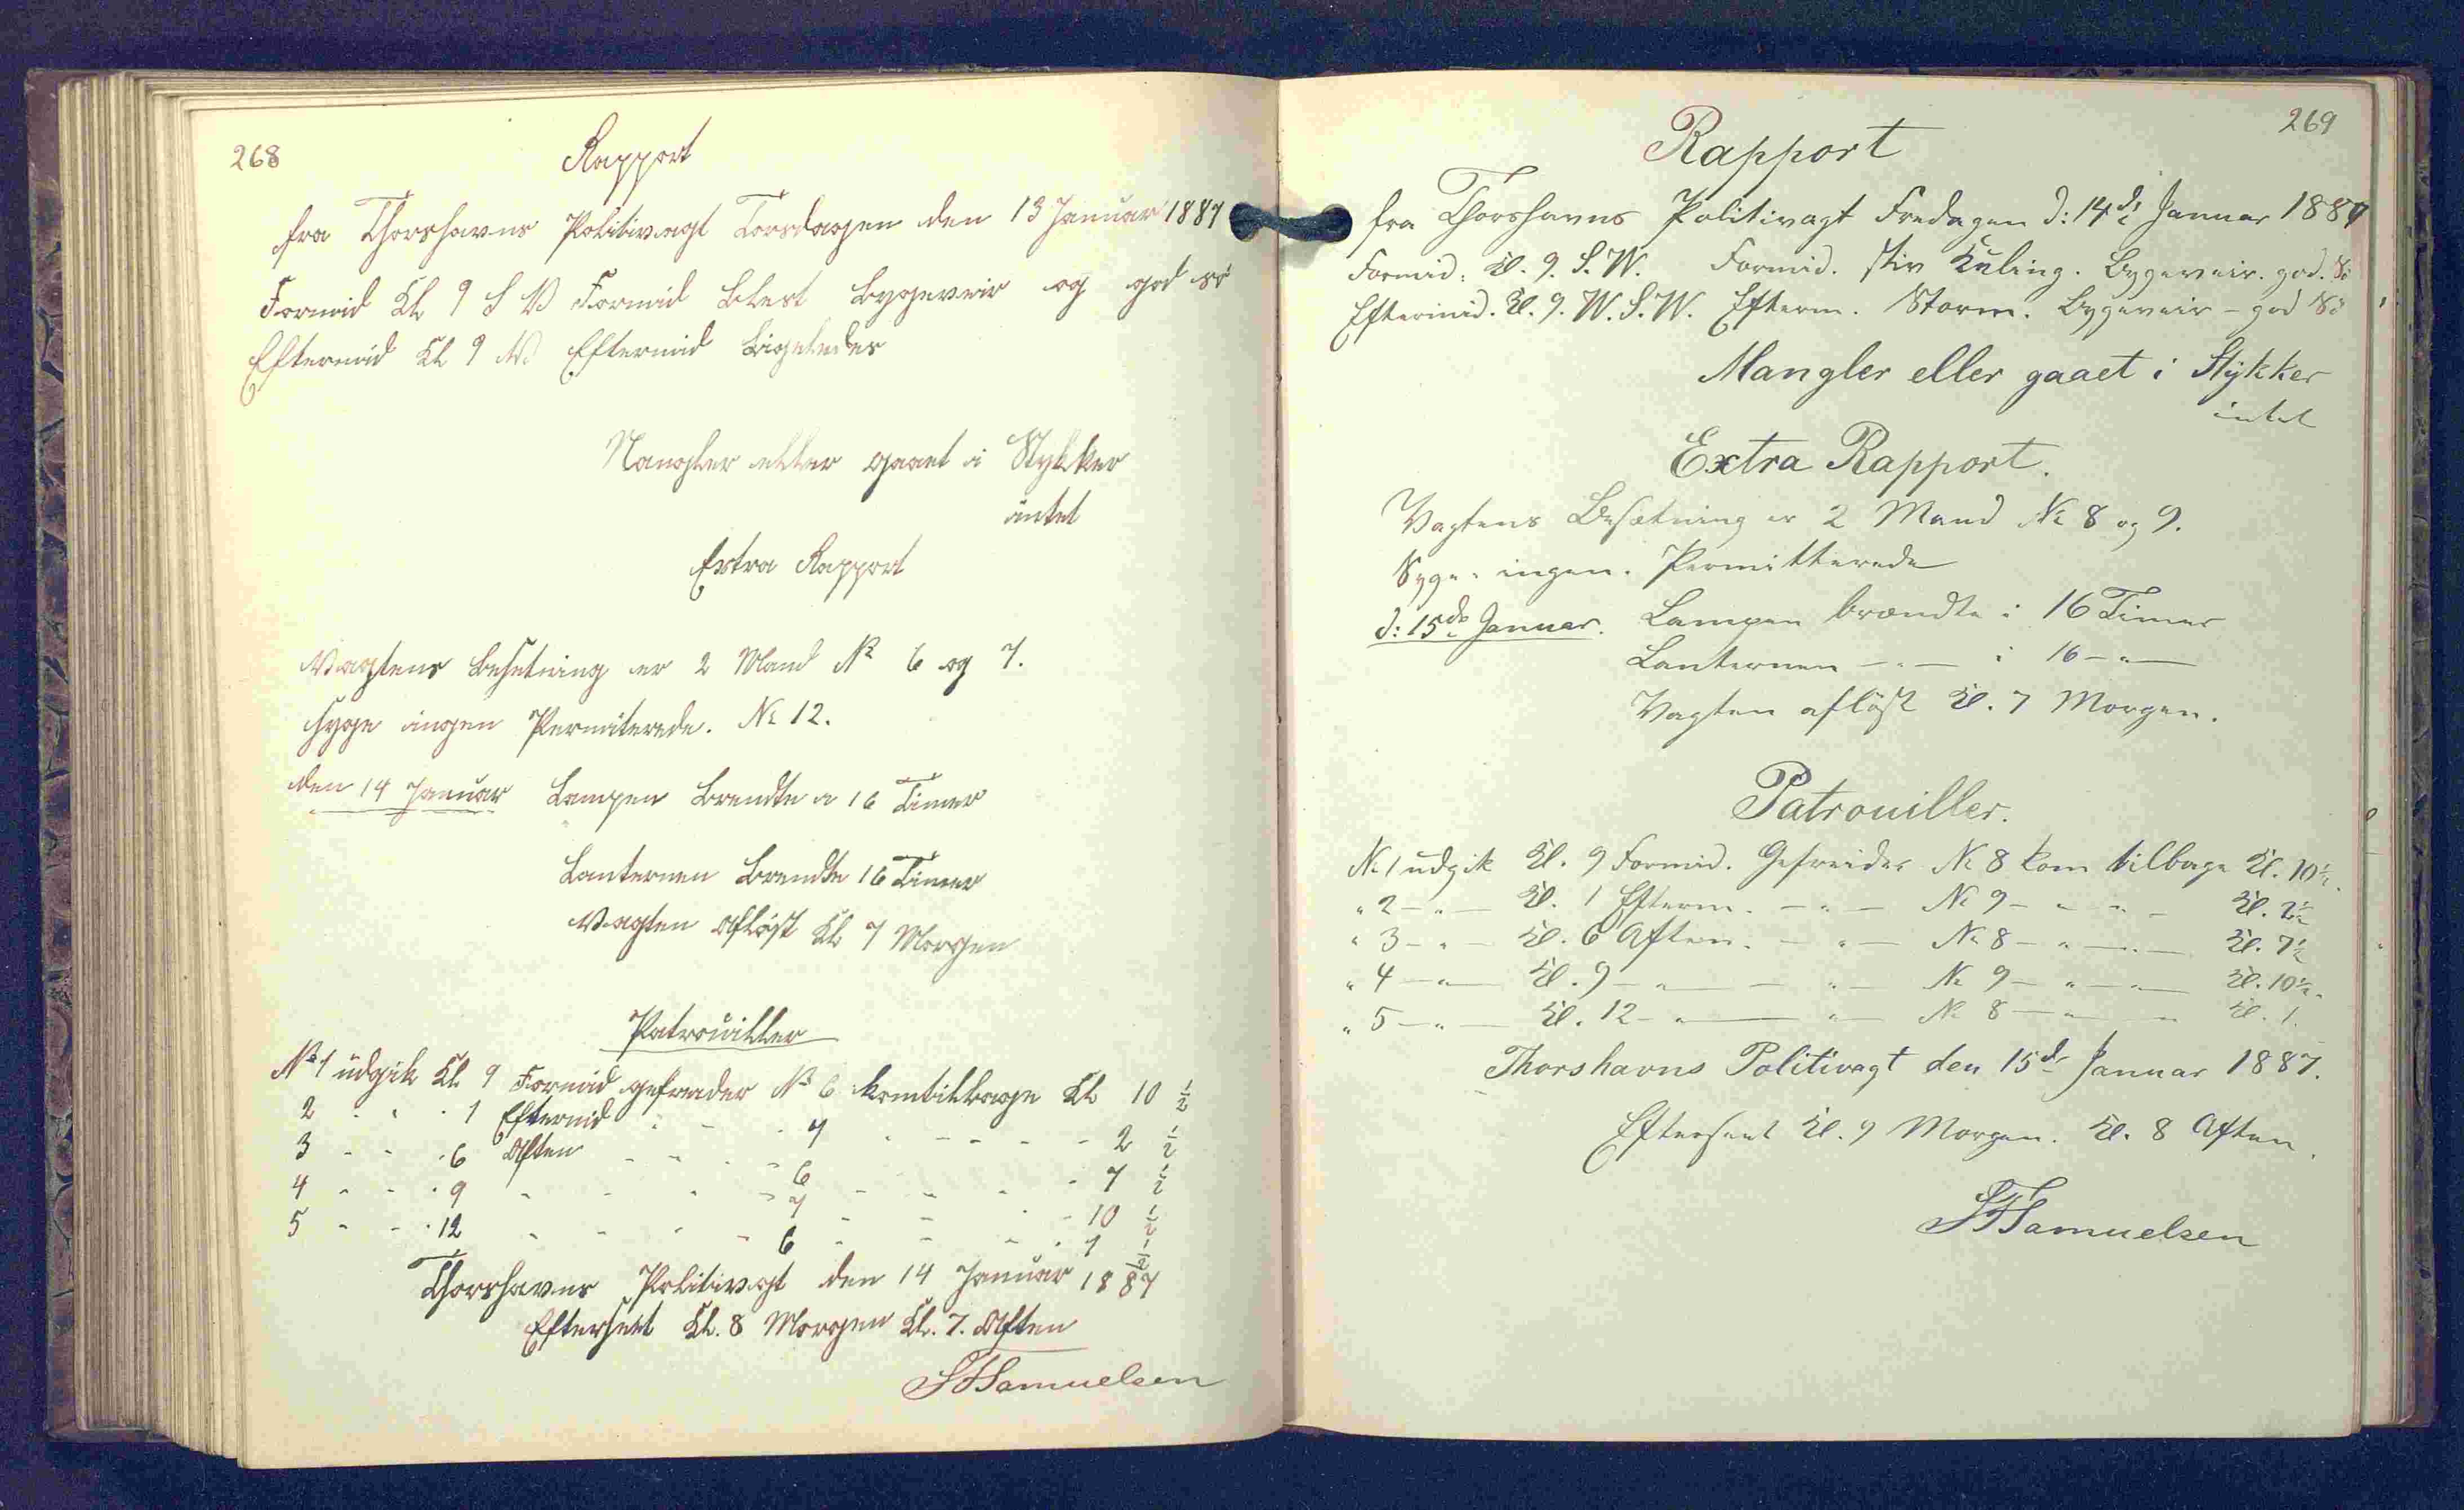 268
Rapport
fra Thorshavns Politivagt Torsdagen den 13 Januar 1887
Formid Kl 9 S V Formid blest bygeveir og god sö
Eftermid Kl 9 W Eftermid Ligeledes
Mangler eller gaaet i Stykker
intet
Extra Rapport
Vagtens besetning er 2 Mand No 6 og 7.
Syge ingen Permiterede. No 12.
den 14 Januar Lampen brendte i 16 Timer
Lanternen brendte 16 Timer
Vagten aflöst Kl 7 Morgen
Patrouiller
No 1 udgik Kl. 9 Formid gefreider No 6 kom tilbage Kl 10 1/2
2 " " " 1 Eftermid " - " 7 " - - - - 2 1/2
3 - - " 6 Aften - - - - 6 - - - " 7 1/2
4 - - " 9 - - - - 7 - - - - 10 1/2
5 - - " 12 - - - - 6 - - - " 1 1/2
Thorshavns Politivagt den 14 Januar 1887
Efterseet Kl. 8 Morgen Kl. 7. Aften
Samuelsen
269
Rapport
fra Thorshavns Politivagt Fredagen d: 14de Januar 1887
Formid: Kl. 9. S.W. Formid. stiv Kuling. Bygeveir. god Sö
Eftermid. Kl. 9. W.S.W. Efterm. Storm. Bygeveir - god Sö
Mangler eller gaaet i Stykker
intet
Extra Rapport.
Vagtens Besætning er 2 Mand No 8 og 9.
Syge: ingen. Permitterede
d: 15de Januar. Lampen brændte i 16 Timer
Lanternen - " - i 16 - " -
Vagten aflöst Kl. 7 Morgen.
Patrouiller.
No 1 udgik Kl. 9 Formid. Gefreider No 8 kom tilbage Kl. 10½.
" 2 - " - Kl. 1 Efterm. - " - No 9 - " - " - Kl. 2½
" 3 - " - Kl. 6 Aften. - " - No 8 - " - " - Kl. 7½
" 4 - " - Kl. 9 - " - - " - No 9 - " - " - Kl. 10½.
" 5 - " - Kl. 12 - " - " - No 8 - " - " Kl. 1.
Thorshavns Politivagt den 15de Januar 1887.
Efterseet Kl. 9 Morgen. Kl. 8 Aften.
Samuelsen